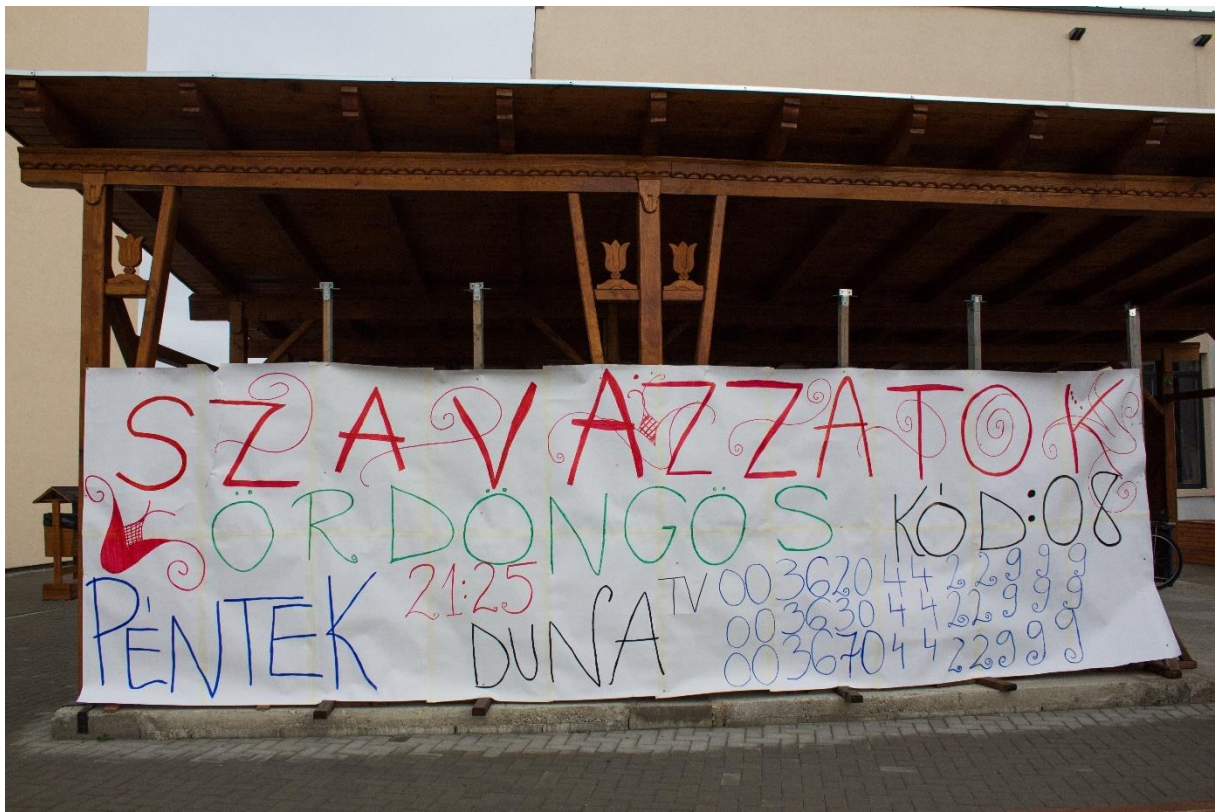 SZAVAZZATOK
ÖRDÖNGÖS KÓD:08
PÉNTEK 21:25 DUNA TV
0036204422999
0036304422999
0036704422999